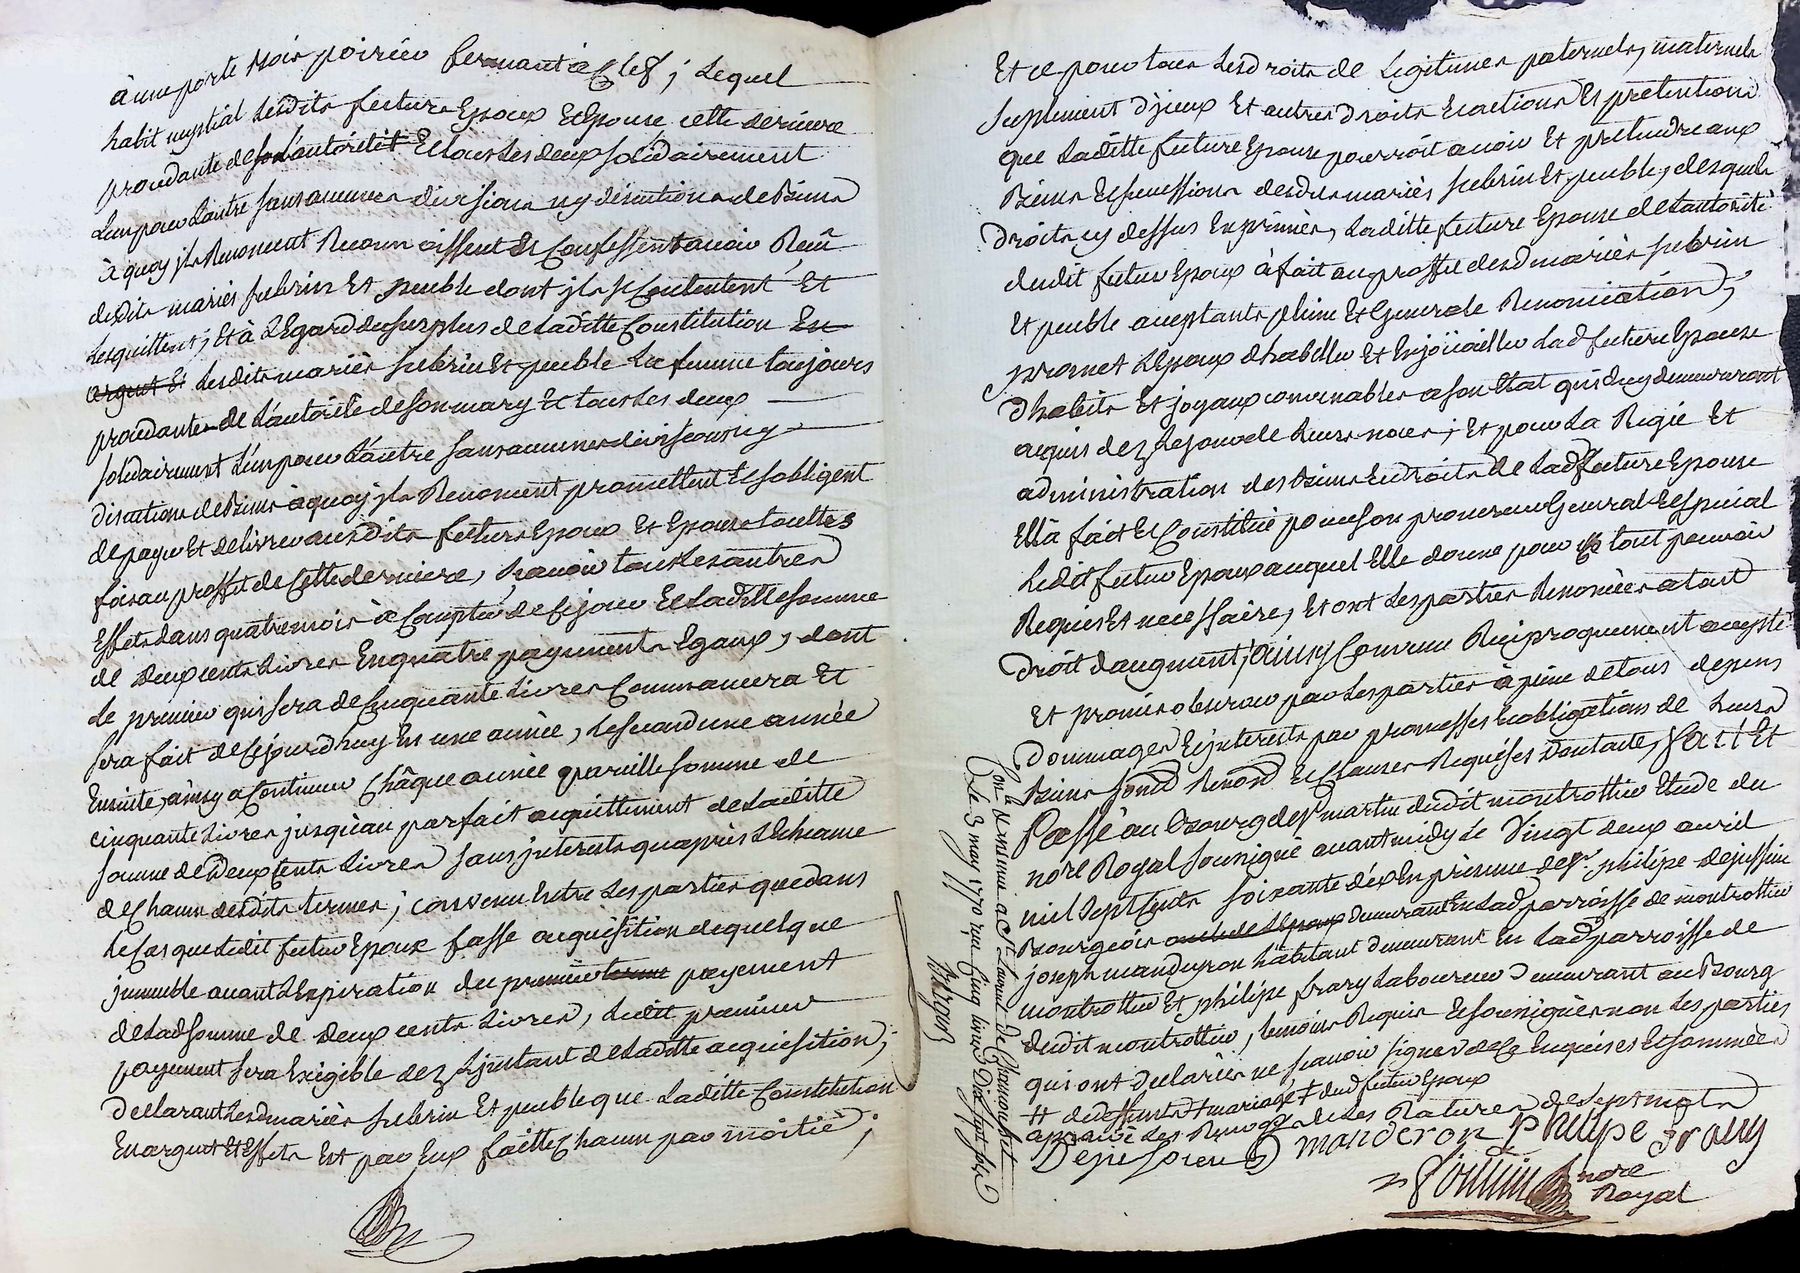 à une porte bois poirier fermant à Clef ; Lequel
habit nuptial Lesdits future Epoux et Epouse cette derniere
procedante de son autorité et tous Les deux solidairement
L'un pour L'autre sans aucunes divisions ny discutions de Biens
à quoy jls Renoncent Reconnoissent Et Confessent avoir Reçu
desdits mariés subrin Et peuble dont jls se Contentent Et
Lesquittent ; Et à L'Egard du surplus de Laditte Constitution En
argent Et Lesdits mariés subrin Et peuble La femme toujours
procedante de L'autorité de son mary Et tous Les deux
solidairement L'un pour L'autre sans aucunes division ny
discutions de Biens à quoy jls Renoncent promettent Et sobligent
de payer Et delivrer ausdits futurs Epoux Et Epouse touttes
fois au proffit de Cette derniere, sçavoir tous Les autres
Effets dans quatre mois à Compter de Ce jour Et Laditte somme
de Deux cents Livres En quatre payements Egaux, dont
Le premier qui sera de Cinquante Livres Commancera Et
sera fait de Cejourdhuy En une année, Le second une année
Ensuite, ainsy a Continuer Châque année pareille somme de
cinquante Livres jusqu'au parfait acquittement de Laditte
somme de Deux Cents Livres sans jnterests qu'après L'Echeance
de Chacun desdits termes ; convenu Entre Les parties que dans
Le Cas que Ledit futur Epoux fasse acquisition de quelque
jmmeuble avant L'Expiration du premier terme payement
de Lad somme de Deux cents Livres, Ledit premier
payement sera Exigible dez L'jnstant de Laditte acquisition ;
declarant Lesd mariés subrin Et peuble que Laditte Constitution
En argent Et Effets Est par Eux faitte Chacun par moitié ;
Et ce pour tous Les Droits de Legitimes paternels, maternels
suplement d'jceux Et autres Droits Et actions Et pretentions
que Laditte future Epouse pourroit avoir Et pretendre aux
Biens Et successions desdits mariés subrin Et peuble, desquels
Droits cy dessus Exprimés, Laditte future Epouse de L'autorité
dudit futur Epoux à fait au proffit desd mariés subrin
Et peuble acceptants pleine Et Generale Renonciation ;
promet L'Epoux d'habiller Et Enjoüailler Lad future Epouse
d'habits Et joyaux convenables a son Etat qui luy demeureront
acquis dez Le jour de Leurs noces ; Et pour La Regie Et
administration des Biens Et Droits de Lad future Epouse
Ella fait Et Constitué pour son procureur General Et special
Ledit futur Epoux auquel Elle donne pour ce tout pouvoir
Requis Et necessaire, Et ont Les parties Renoncées a tout
Droit d'augment ; ainsy Convenu Reciproquement accepté
Et promis observer par Les parties à peine de tous depens
Dommages Et jnterests par promesses Et obligations de Leurs
Biens soumd Renond Et Clauses Requises Dont acte, fait Et
Passé au Bourg de St martin dudit montrottier Etude du
nore Royal soussigné avant midy Le Vingt deux avril
mil Sept Cents soixante dix En presence de sr. philipe dejussieu
Bourgeois demeurant En Lad parroisse de montrottier
joseph manderon habitant demeurant En Lad parroisse de
montrottier Et philipe frary Laboureur Demeurant au Bourg
dudit montrottier, temoins Requis Et soussignés non Les parties
qui ont declarées ne sçavoir signer de ce Enquises Et sommées
# dudit futur Epoux
approuvé Les Renvoys et Les Ratures de sept mots
Dejussieu manderon Philipe frary
nore
Royal
Le 3 may 1770 reçu Cinq livres Dix sept sols